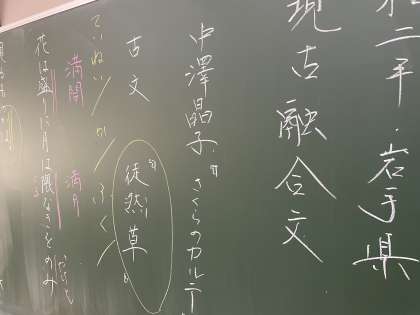 和二年・岩手県
現古融合文
中澤晶子『さくらのカルテ
古文『徒然草』
ていねい/かふく/
満開 満月
花は盛りに月は隈なきをのみ